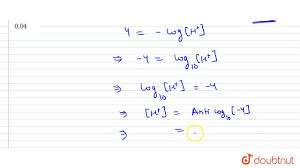 0.04
4 = - log [H⁺]
⇒ -4 = log₁₀ [H⁺]
⇒ log₁₀ [H⁺] = -4
⇒ [H⁺] = Anti log₁₀ [-4]
⇒ =
doubtnut